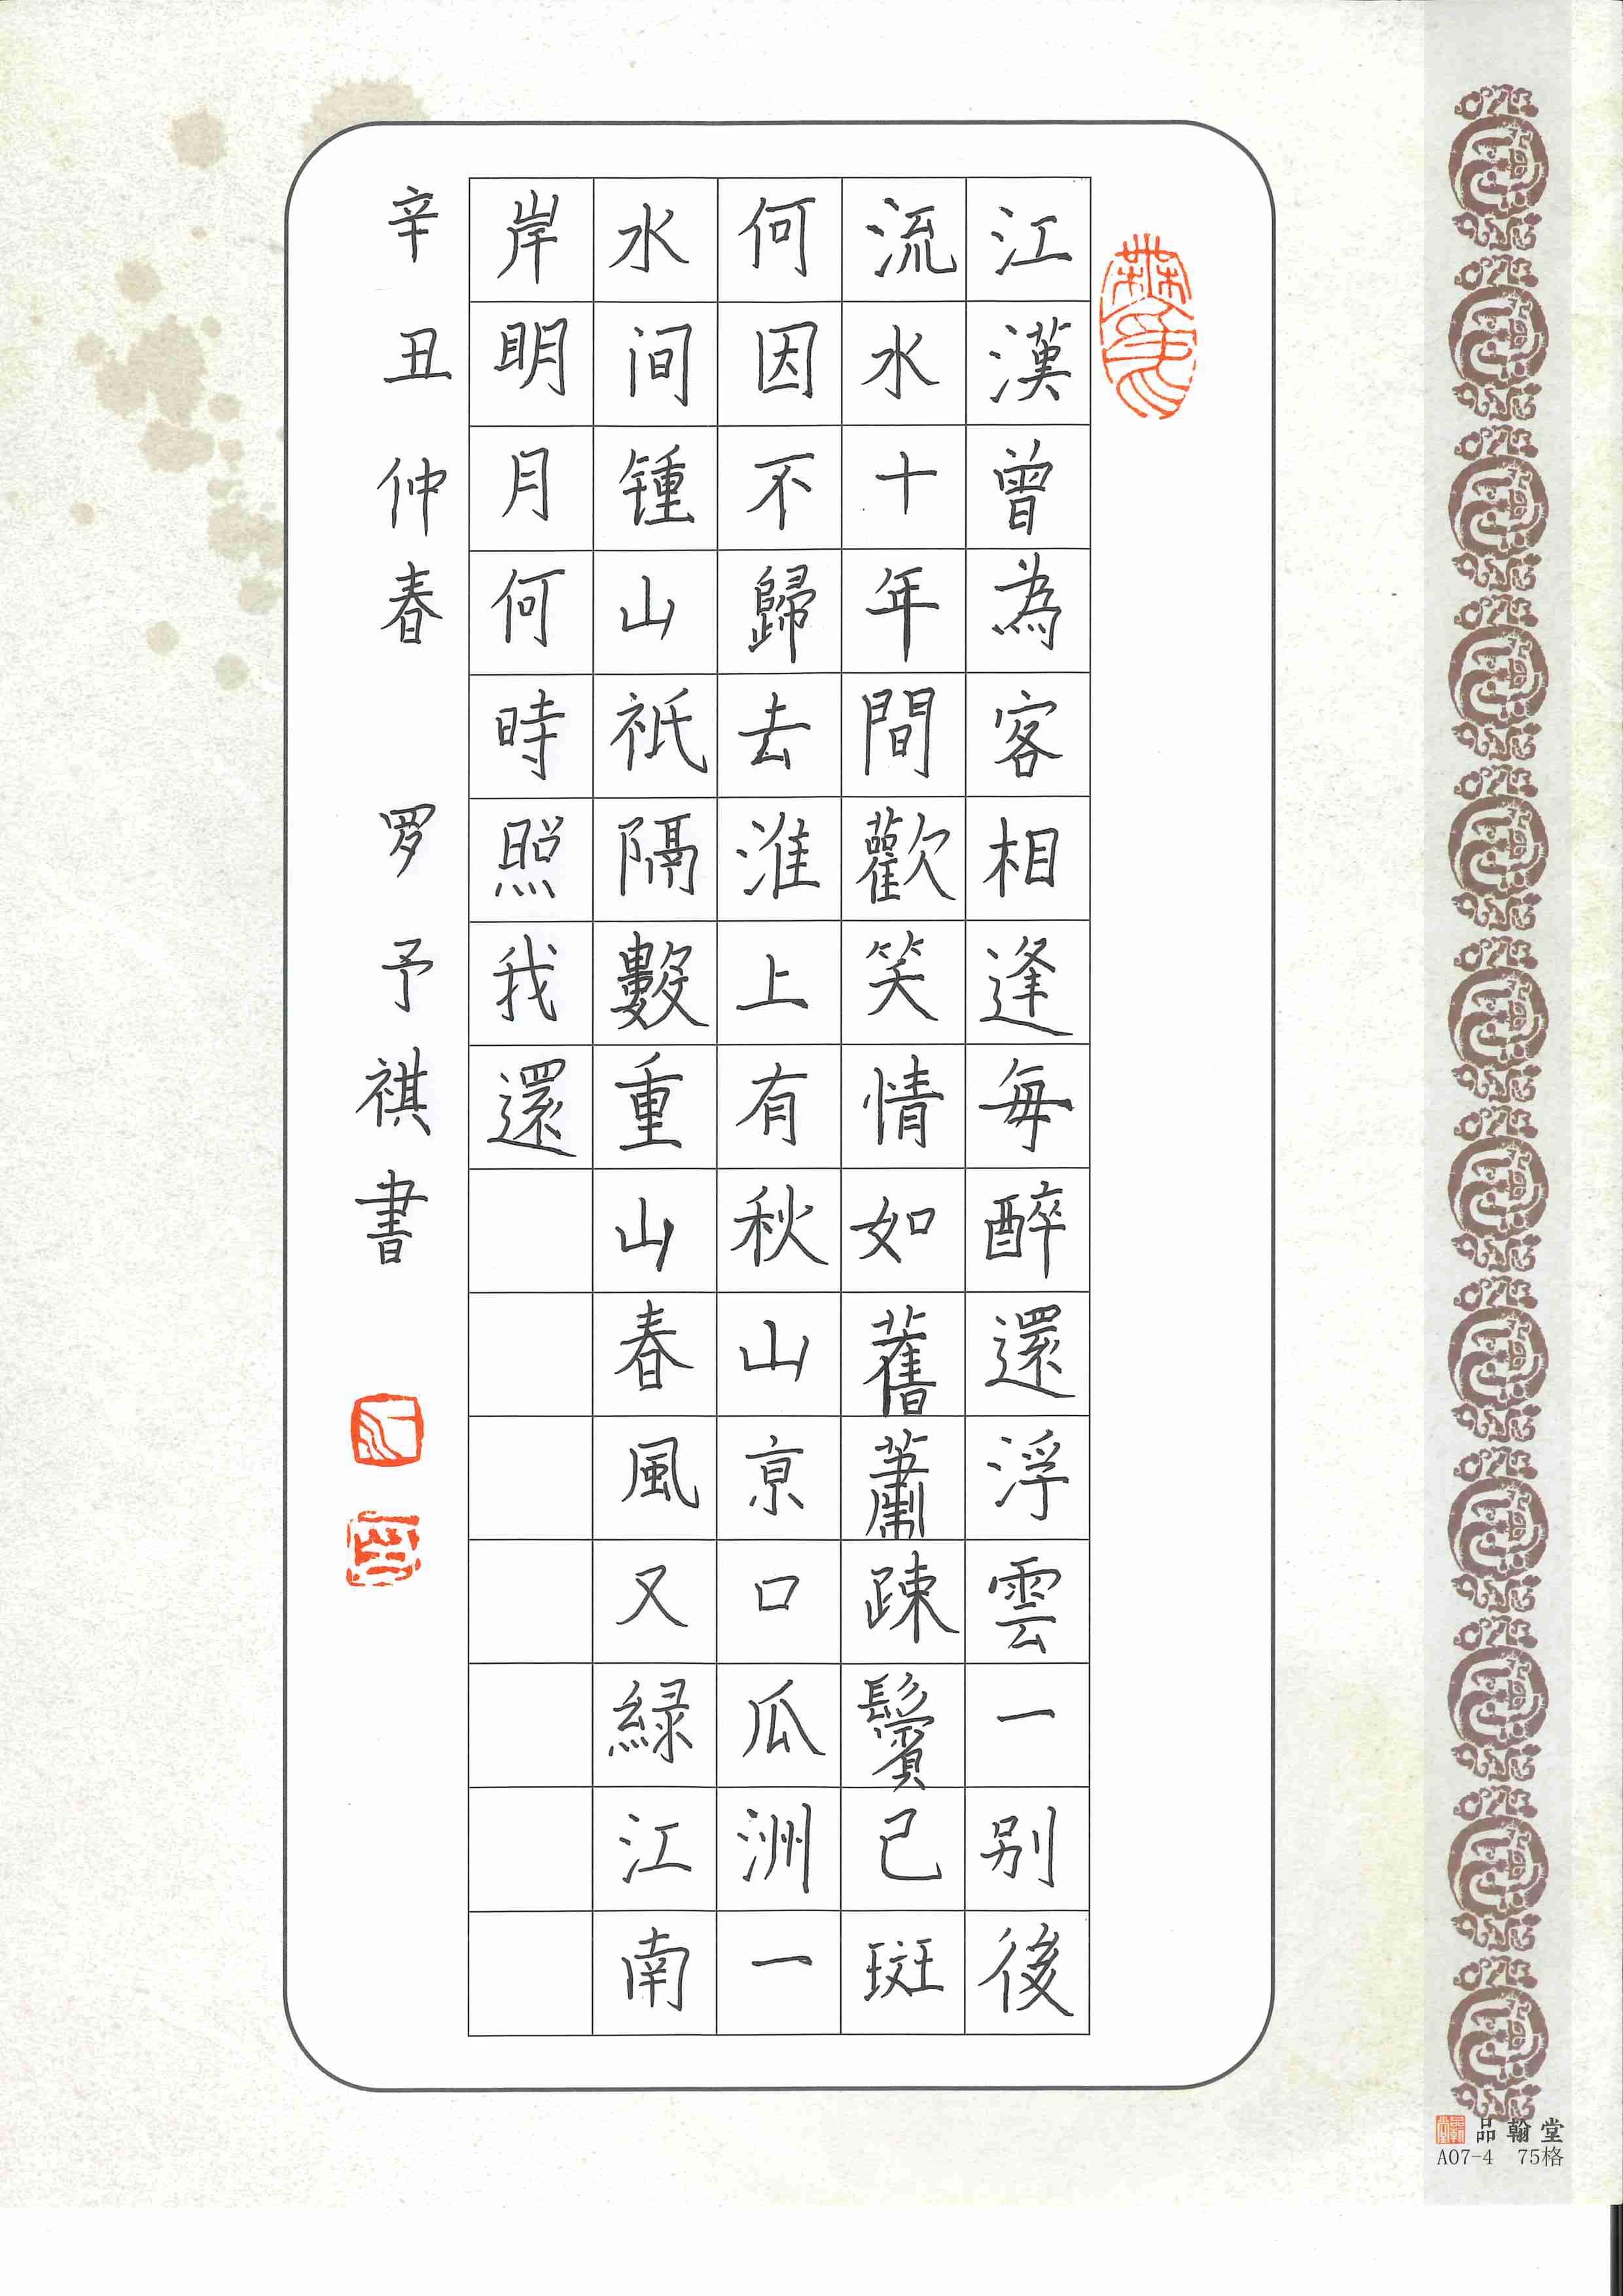 江漢曾為客相逢每醉還浮雲一别後
流水十年間歡笑情如舊蕭疎鬢已斑
何因不歸去淮上有秋山京口瓜洲一
水间锺山衹隔數重山春風又緑江南
岸明月何時照我還
辛丑仲春 罗予祺書
品翰堂
A07-4 75格